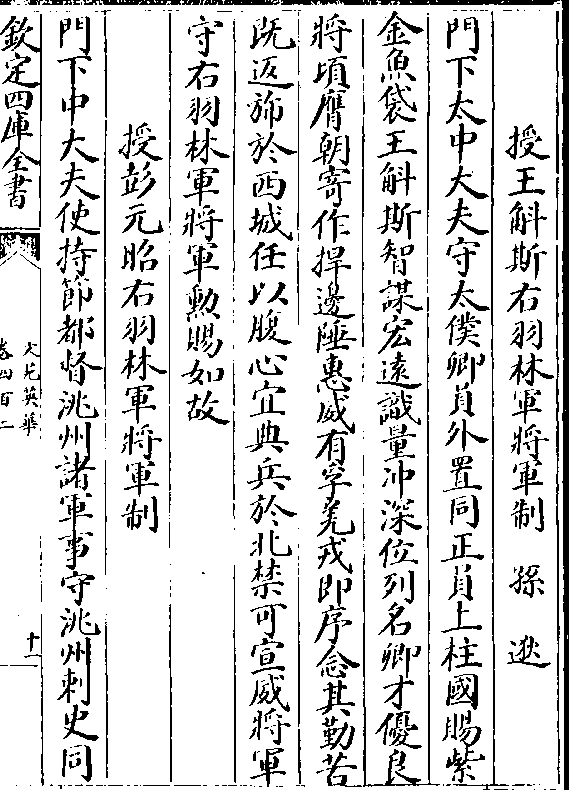 授王斛斯右羽林軍將軍制 孫逖
門下太中大夫守太僕卿員外置同正員上柱國賜紫
金魚袋王斛斯智謀宏遠識量沖深位列名卿才優良
將頃膺朝寄作捍邊陲惠威有孚羌戎即序念其勤苦
既返斾於西城任以腹心宜典兵於北禁可宣威將軍
守右羽林軍將軍勲賜如故
授彭元昭右羽林軍將軍制
門下中大夫使持節都督洮州諸軍事守洮州刺史同
欽定四庫全書
文苑英華
卷四百二
十一